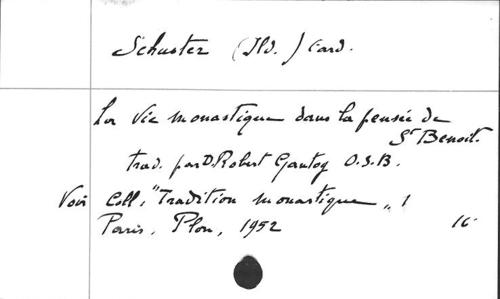 Schuster (Ild.) Card.
La vie monastique dans la pensée de
St Benoit.
trad. par D. Robert Gantoy O.S.B.
Voir Coll. "Tradition monastique„ 1
Paris, Plon, 1952 16